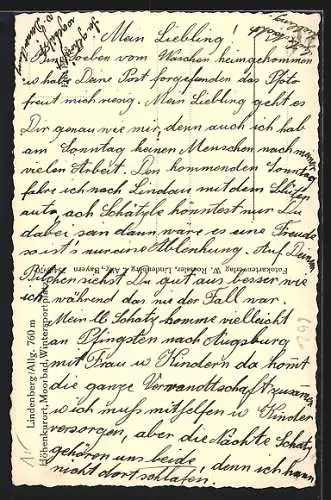 Mein Liebling!
Bin soeben vom Waschen heimgekommen
habe Deine Post vorgefunden das Foto
freut mich riesig. Mein Liebling geht es
Dir genau wie mir, denn auch ich hab
am Sonntag keinen Menschen nach meiner
vielen Arbeit. Den kommenden Sonntag
fahre ich nach Lindau mit dem
auto, ach Schätzle könntest nur Du
dabei sein dann wäre es eine Freude
so ist's nur eine Ablenkung. Auf Deinem
Bildchen siehst Du gut aus besser wie
ich während das nie der Fall war.
Mein lb. Schatz, komme vielleicht
an Pfingsten nach Augsburg
mit Frau u Kindern da kommt
die ganze Verwandtschaft zusammen
u ich muß mithelfen u Kinder
versorgen, aber die Nächte Schatz
gehören uns beide, denn ich kann
nicht dort schlafen!
Lindenberg/Allg. 760 m
Höhenkurort, Moorbad, Wintersportplatz
Fotokartenverlag W. Roessler, Lindenberg i. Allg., Bayern